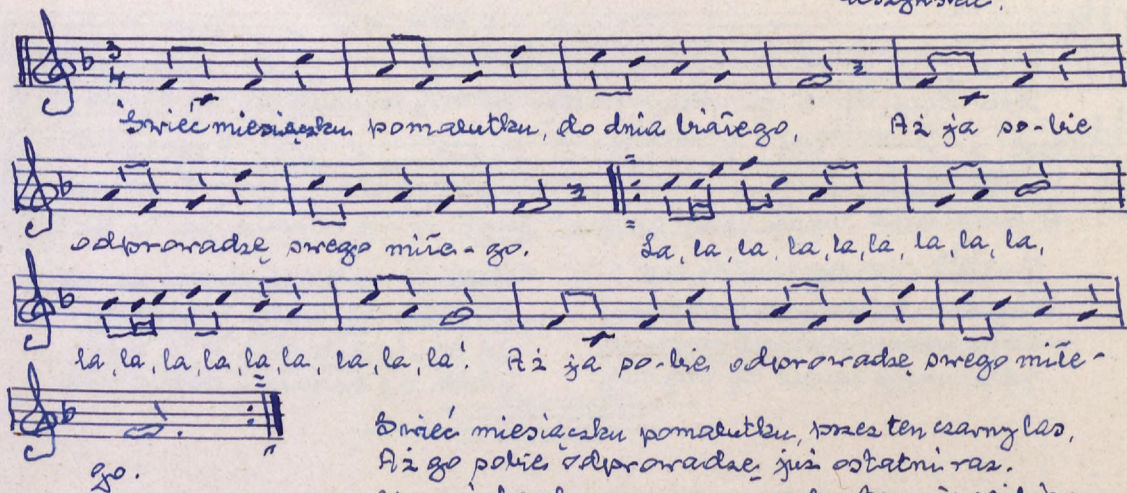 3
4
Świeć miesiączku pomalutku, do dnia białego, Aż ja so-bie
odprowadzę swego miłe-go. La, la, la, la, la, la, la, la, la,
la, la, la, la, la, la, la, la, la! Aż ja so-bie odprowadzę swego miłe-
go.
Świeć miesiączku pomalutku, przez ten czarny las,
Aż go sobie odprowadzę już ostatni raz.